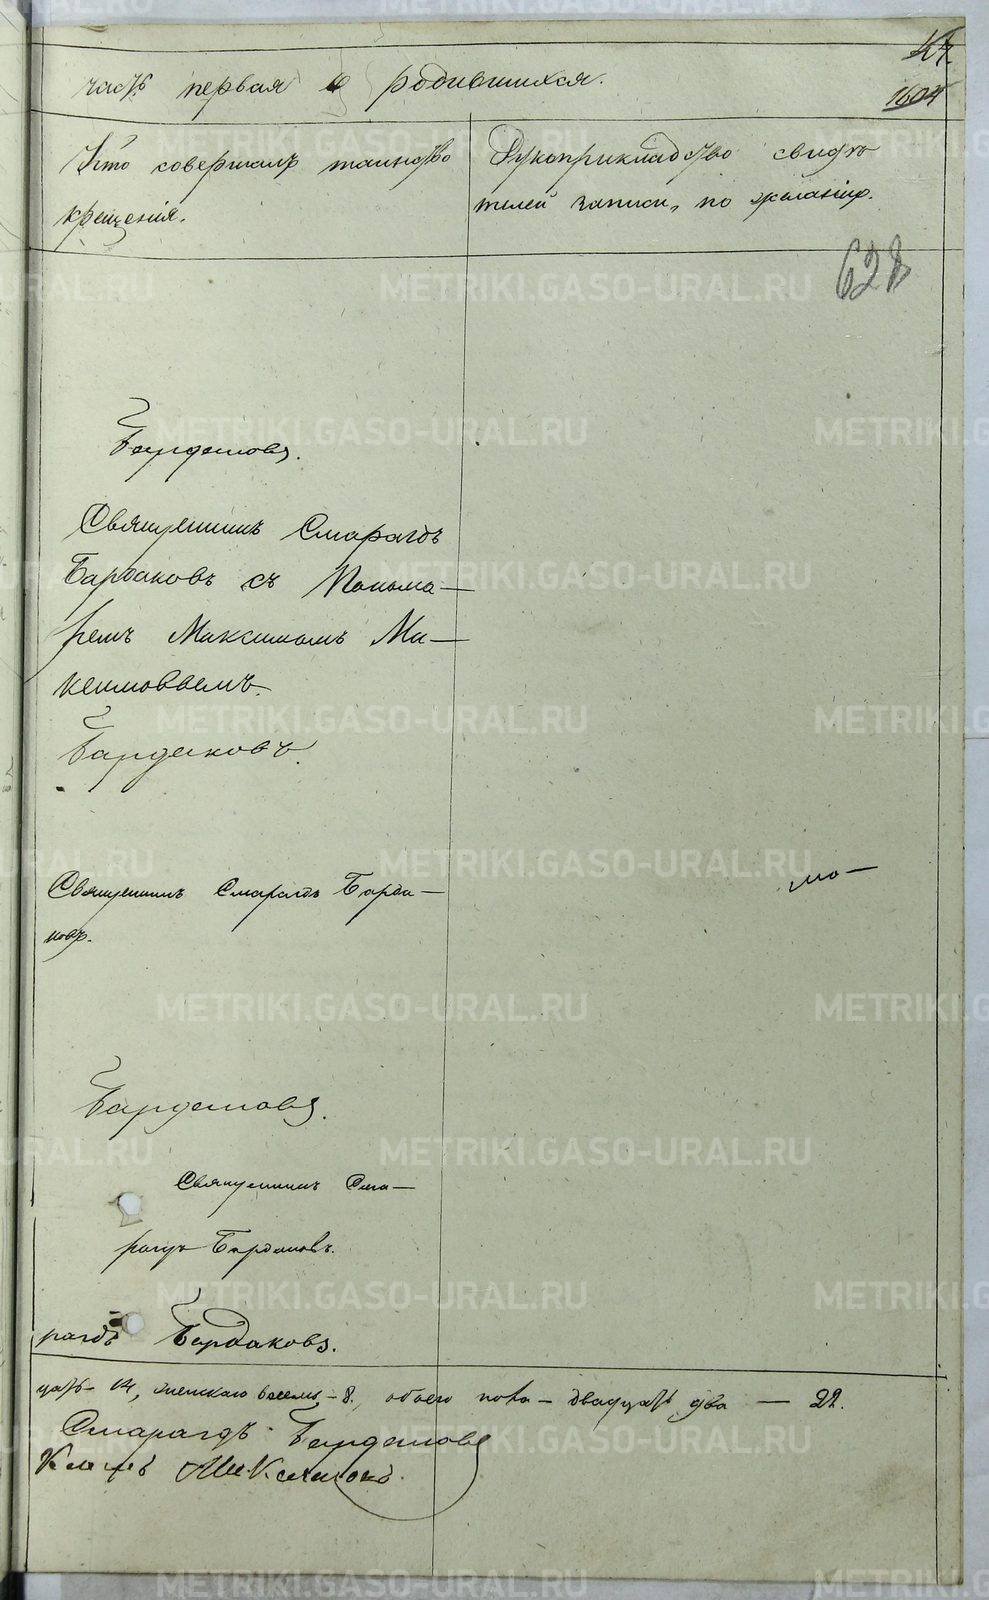 часть первая о родившихся.
1604
Кто совершалъ таинство
крещенія.
Рукоприкладство свидѣ
телей записи, по желанію.
628
Бардаковъ.
Священникъ Смарагдъ
Бардаковъ съ Понома—
ремъ Максимомъ Ма—
ксимовыемъ.
Бардаковъ.
Священникъ Смарагдъ Барда—
ковъ.
Бардаковъ.
Священникъ Сма—
рагдъ Бардаковъ.
рагдъ Бардаковъ.
цать— 14, женскаго восемь—8, обоего пола — двадцать два — 22.
Смарагдъ Бардаковъ
METRIKI.GASO-URAL.RU